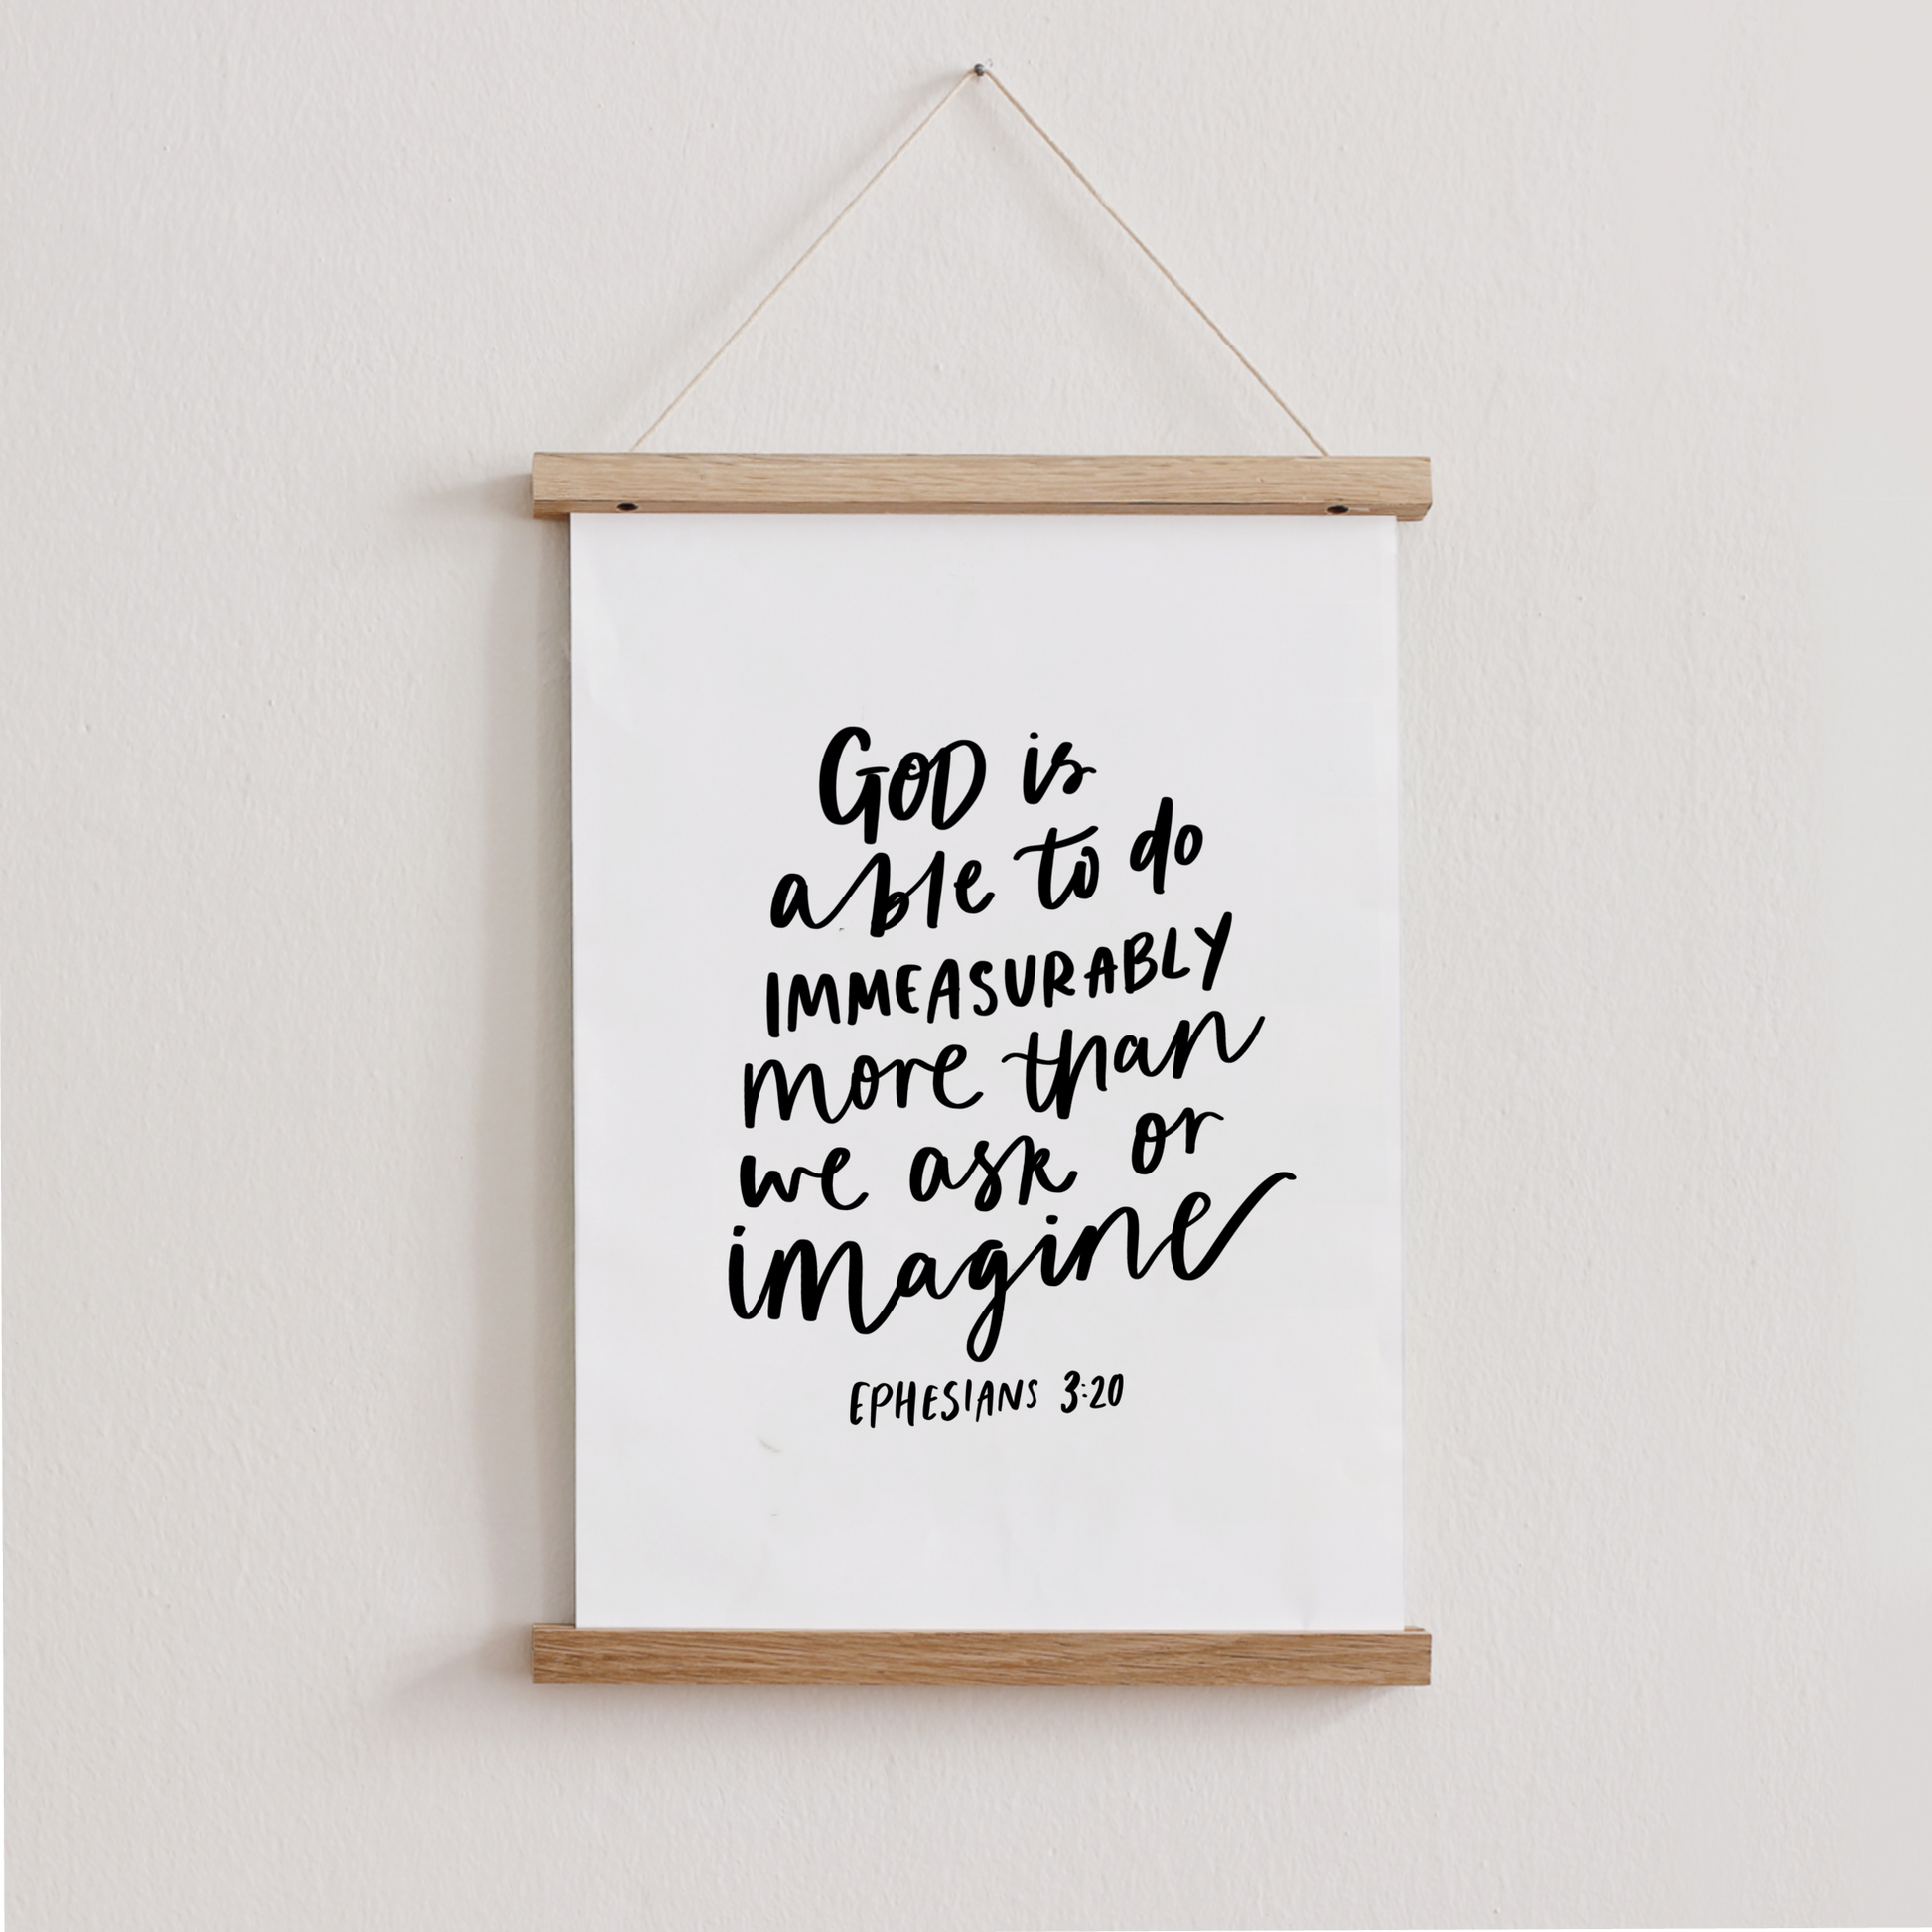 GOD is
able to do
IMMEASURABLY
more than
we ask or
imagine
EPHESIANS 3:20